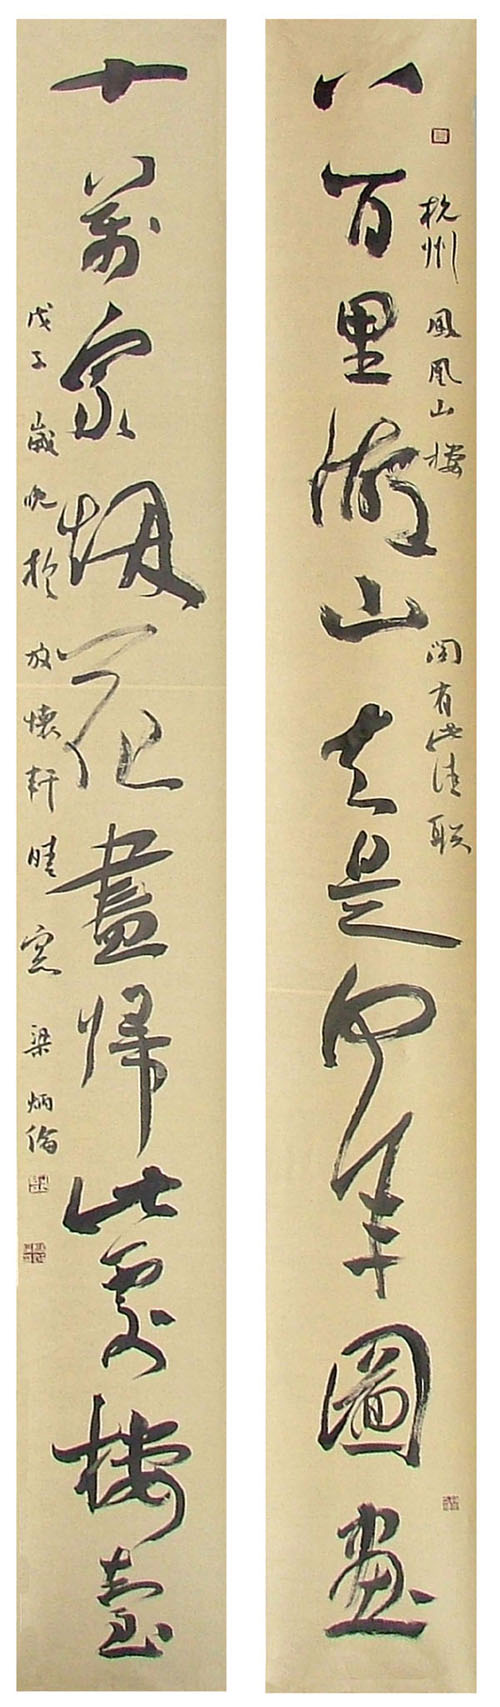 杭州鳳凰山樓閣有此佳联
八百里湖山知是何年圖畫
十萬家烟花盡歸此處樓臺
戊子歲晚於放懷軒晴窓梁炳倫